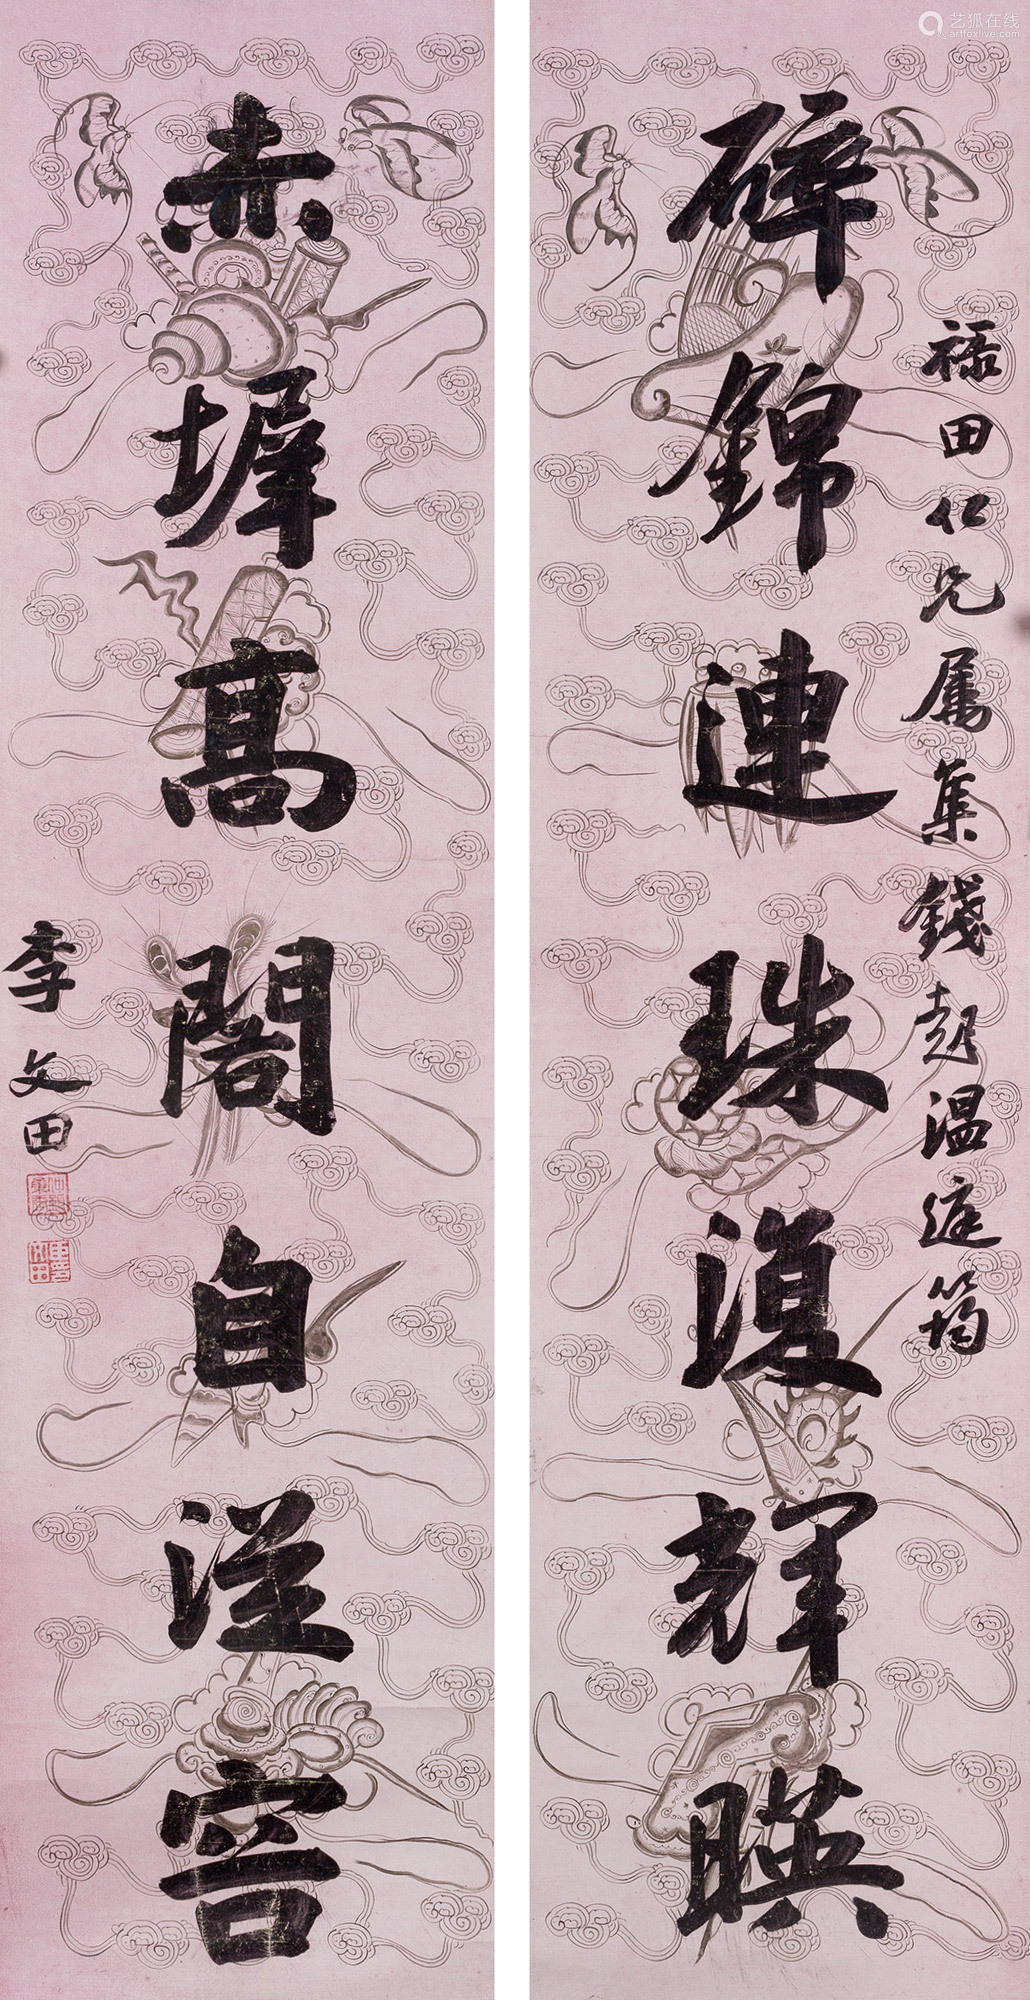 艺狐在线
artfoxlive.com
碎錦連珠復輝暎
禄田仁兄属集錢起温庭筠
赤墀髙閣自從容
李文田